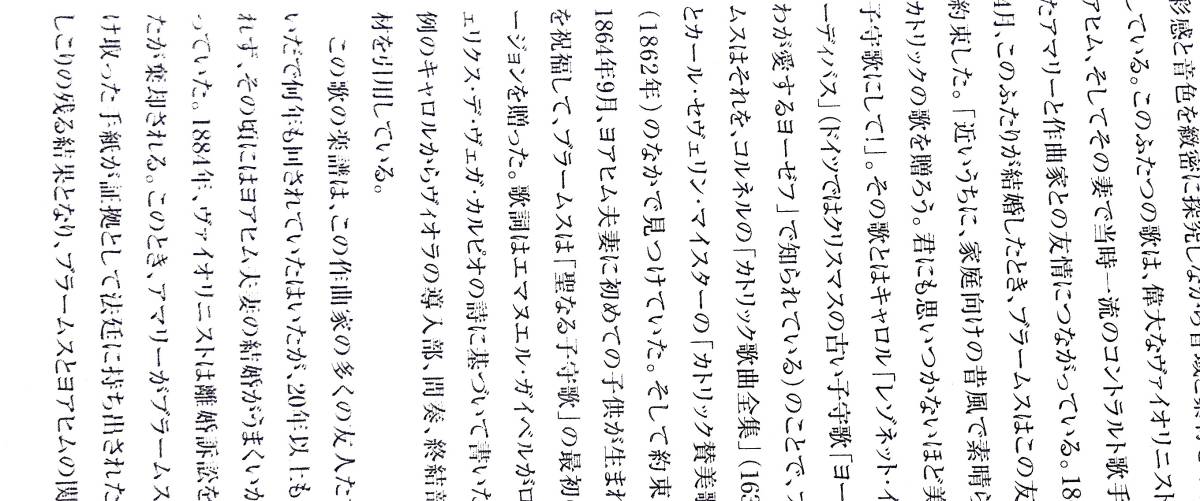 彩感と音色を緻密に探究しながら音域
している。このふたつの歌は、偉大なヴァイオリニスト
アヒム、そしてその妻で当時一流のコントラルト歌手
たアマリーと作曲家との友情につながっている。18
4月、このふたりが結婚したとき、ブラームスはこの友
約束した。「近いうちに、家庭向けの昔風で素晴ら
カトリックの歌を贈ろう。君にも思いつかないほど美
子守歌にして!」。その歌とはキャロル「レゾネット・イ
ーディバス」(ドイツではクリスマスの古い子守歌「ヨー
わが愛するヨーゼフ」で知られている)のことで、ブ
ムスはそれを、コルネルの「カトリック歌曲全集」(163
とカール・セヴェリン・マイスターの「カトリック賛美歌
(1862年)のなかで見つけていた。そして約束
1864年9月、ヨアヒム夫妻に初めての子供が生まれ
を祝福して、ブラームスは「聖なる子守歌」の最初
ージョンを贈った。歌詞はエマヌエル・ガイベルがロ
ェリクス・デ・ヴェガ・カルピオの詩に基づいて書いた
例のキャロルからヴィオラの導入部、間奏、終結部
材を引用している。
この歌の楽譜は、この作曲家の多くの友人た
いだで何年も回されていたはいたが、20年以上も
れず、その頃にはヨアヒム夫妻の結婚がうまくいか
っていた。1884年、ヴァイオリニストは離婚訴訟を
たが棄却される。このとき、アマリーがブラームス
け取った手紙が証拠として法廷に持ち出された
しこりの残る結果となり、ブラームスとヨアヒムの関